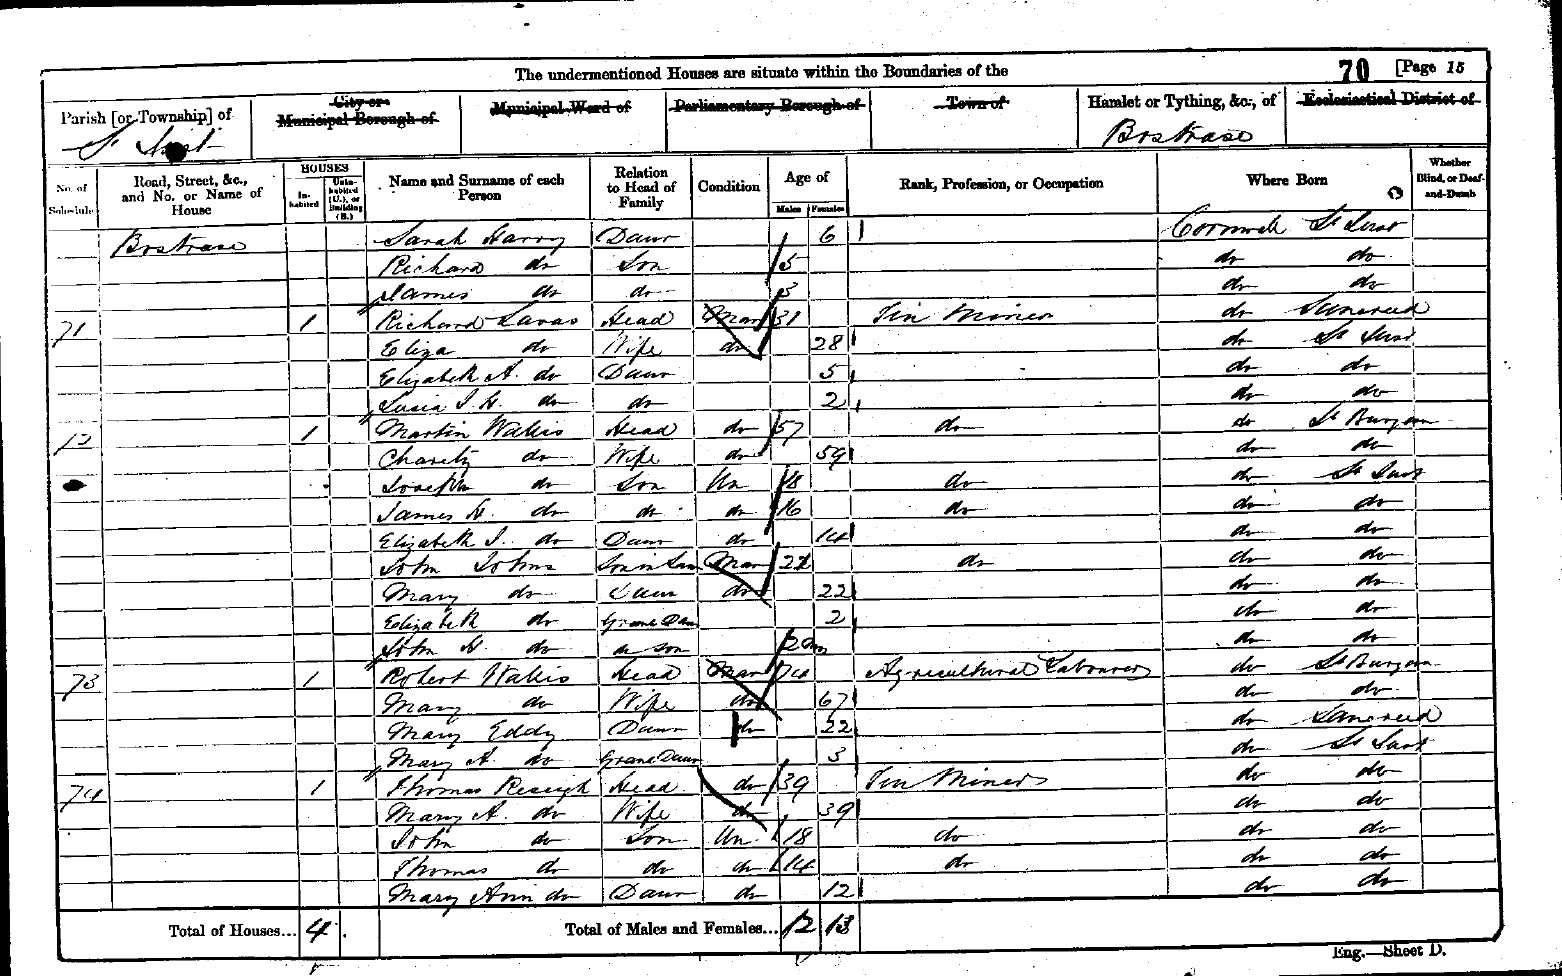 The undermentioned Houses are situate within the Boundaries of the 70 [Page 15
Parish [or Township] of City or Municipal Borough of Municipal Ward of Parliamentary Borough of Town of Hamlet or Tything, &c., of Ecclesiastical District of
St Just Bostrase
No. of Schedule Road, Street, &c., and No. or Name of House HOUSES In-habited Unin-habited (U.), or Building (B.) Name and Surname of each Person Relation to Head of Family Condition Age of Males Females Rank, Profession, or Occupation Where Born Whether Blind, or Deaf-and-Dumb
Bostrase Sarah Harry Daur 6 Cornwall St Just
Richard do Son 5 do do
James do do 3 do do
71 1 Richard Lavas Head Mar 31 Tin Miner do Sancreed
Eliza do Wife do 28 do St Just
Elizabeth A. do Daur 5 do do
Lusia J. H. do do 2 do do
72 1 Martin Wallis Head do 57 do do St Buryan
Charity do Wife do 59 do do
Joseph do Son Un 18 do do St Just
James H. do do do 16 do do do
Elizabeth J. do Daur do 14 do do
John Johns Son in Law Mar 22 do do do
Mary do Daur do 22 do do
Elizabeth do Grand Daur 2 do do
John H. do do son 2 do do
73 1 Robert Wallis Head Mar 74 Agricultural Labourer do St Buryan
Mary do Wife do 67 do do
Mary Eddy Daur do 22 do Sancreed
Mary A. do Grand Daur 3 do St Just
74 1 Thomas Reseigh Head do 39 Tin Miner do do
Mary A. do Wife do 39 do do
John do Son Un 18 do do do
Thomas do do do 14 do do do
Mary Ann do Daur do 12 do do
Total of Houses... 4 Total of Males and Females... 12 13
Eng.—Sheet D.